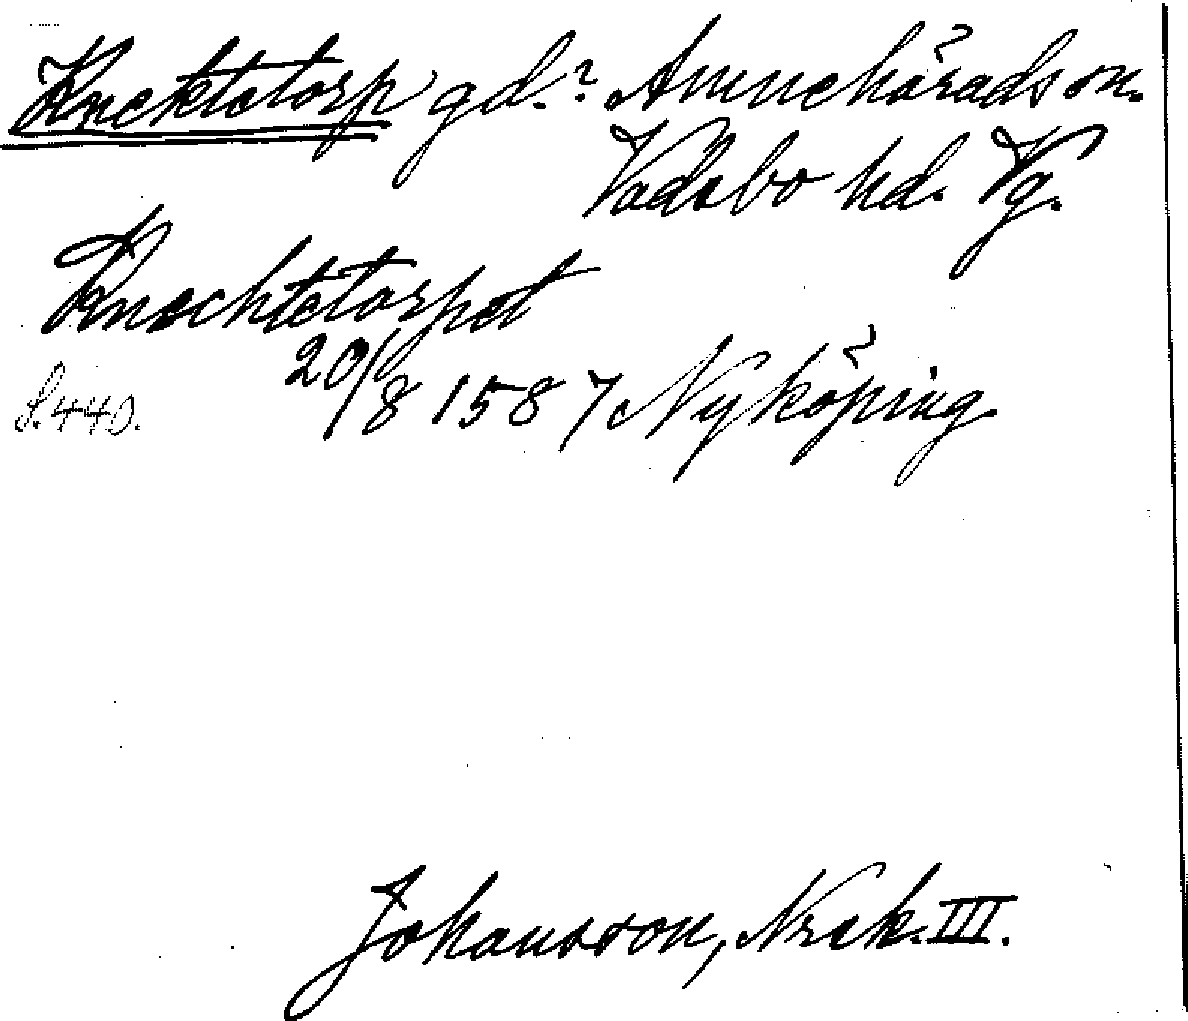 Knektetorp gd.? Amnehärads sn.
Vadsbo hd. Vg.
Knechtetorpet
20/8 1587 Nyköping
S. 440.
Johansson, Nrsk. III.